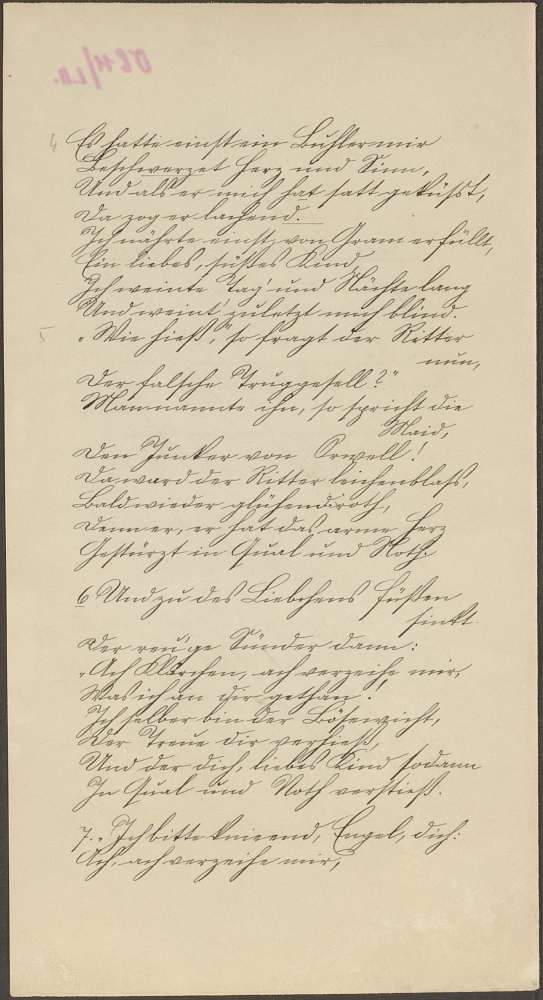 4 Es hatte einst ein Buhler mir
Beschwerzet Herz und Sinn,
Und als er mich hat satt geküsst,
Da zog er lachend.
Ich nährte einst, von Gram erfüllt,
Ein liebes, süßes Kind
Ich weinte Tag' und Nächte lang
Und weint' zuletzt mich blind.
5 "Wie hieß", so fragt der Ritter
nun,
Der falsche Truggesell?"
Man nannte ihn, so spricht die
Maid,
Den Junker von Orwell!
Da ward der Ritter leichenblass,
Bald wieder glühend roth,
Denn er, er hat das arme Herz
Gestürzt in Qual und Noth.
6 Und zu des Liebchens Füßen
sinkt
Der reu'ge Sünder dann:
"Ach Klärchen, ach verzeihe mir,
Was ich an dir gethan!
Ich selber bin der Bösewicht,
Der Treue dir verhieß,
Und der dich, liebes Kind sodann
In Qual und Noth verstieß.
7. "Ich bitte knieend, Engel, dich:
Ach, ach verzeihe mir,